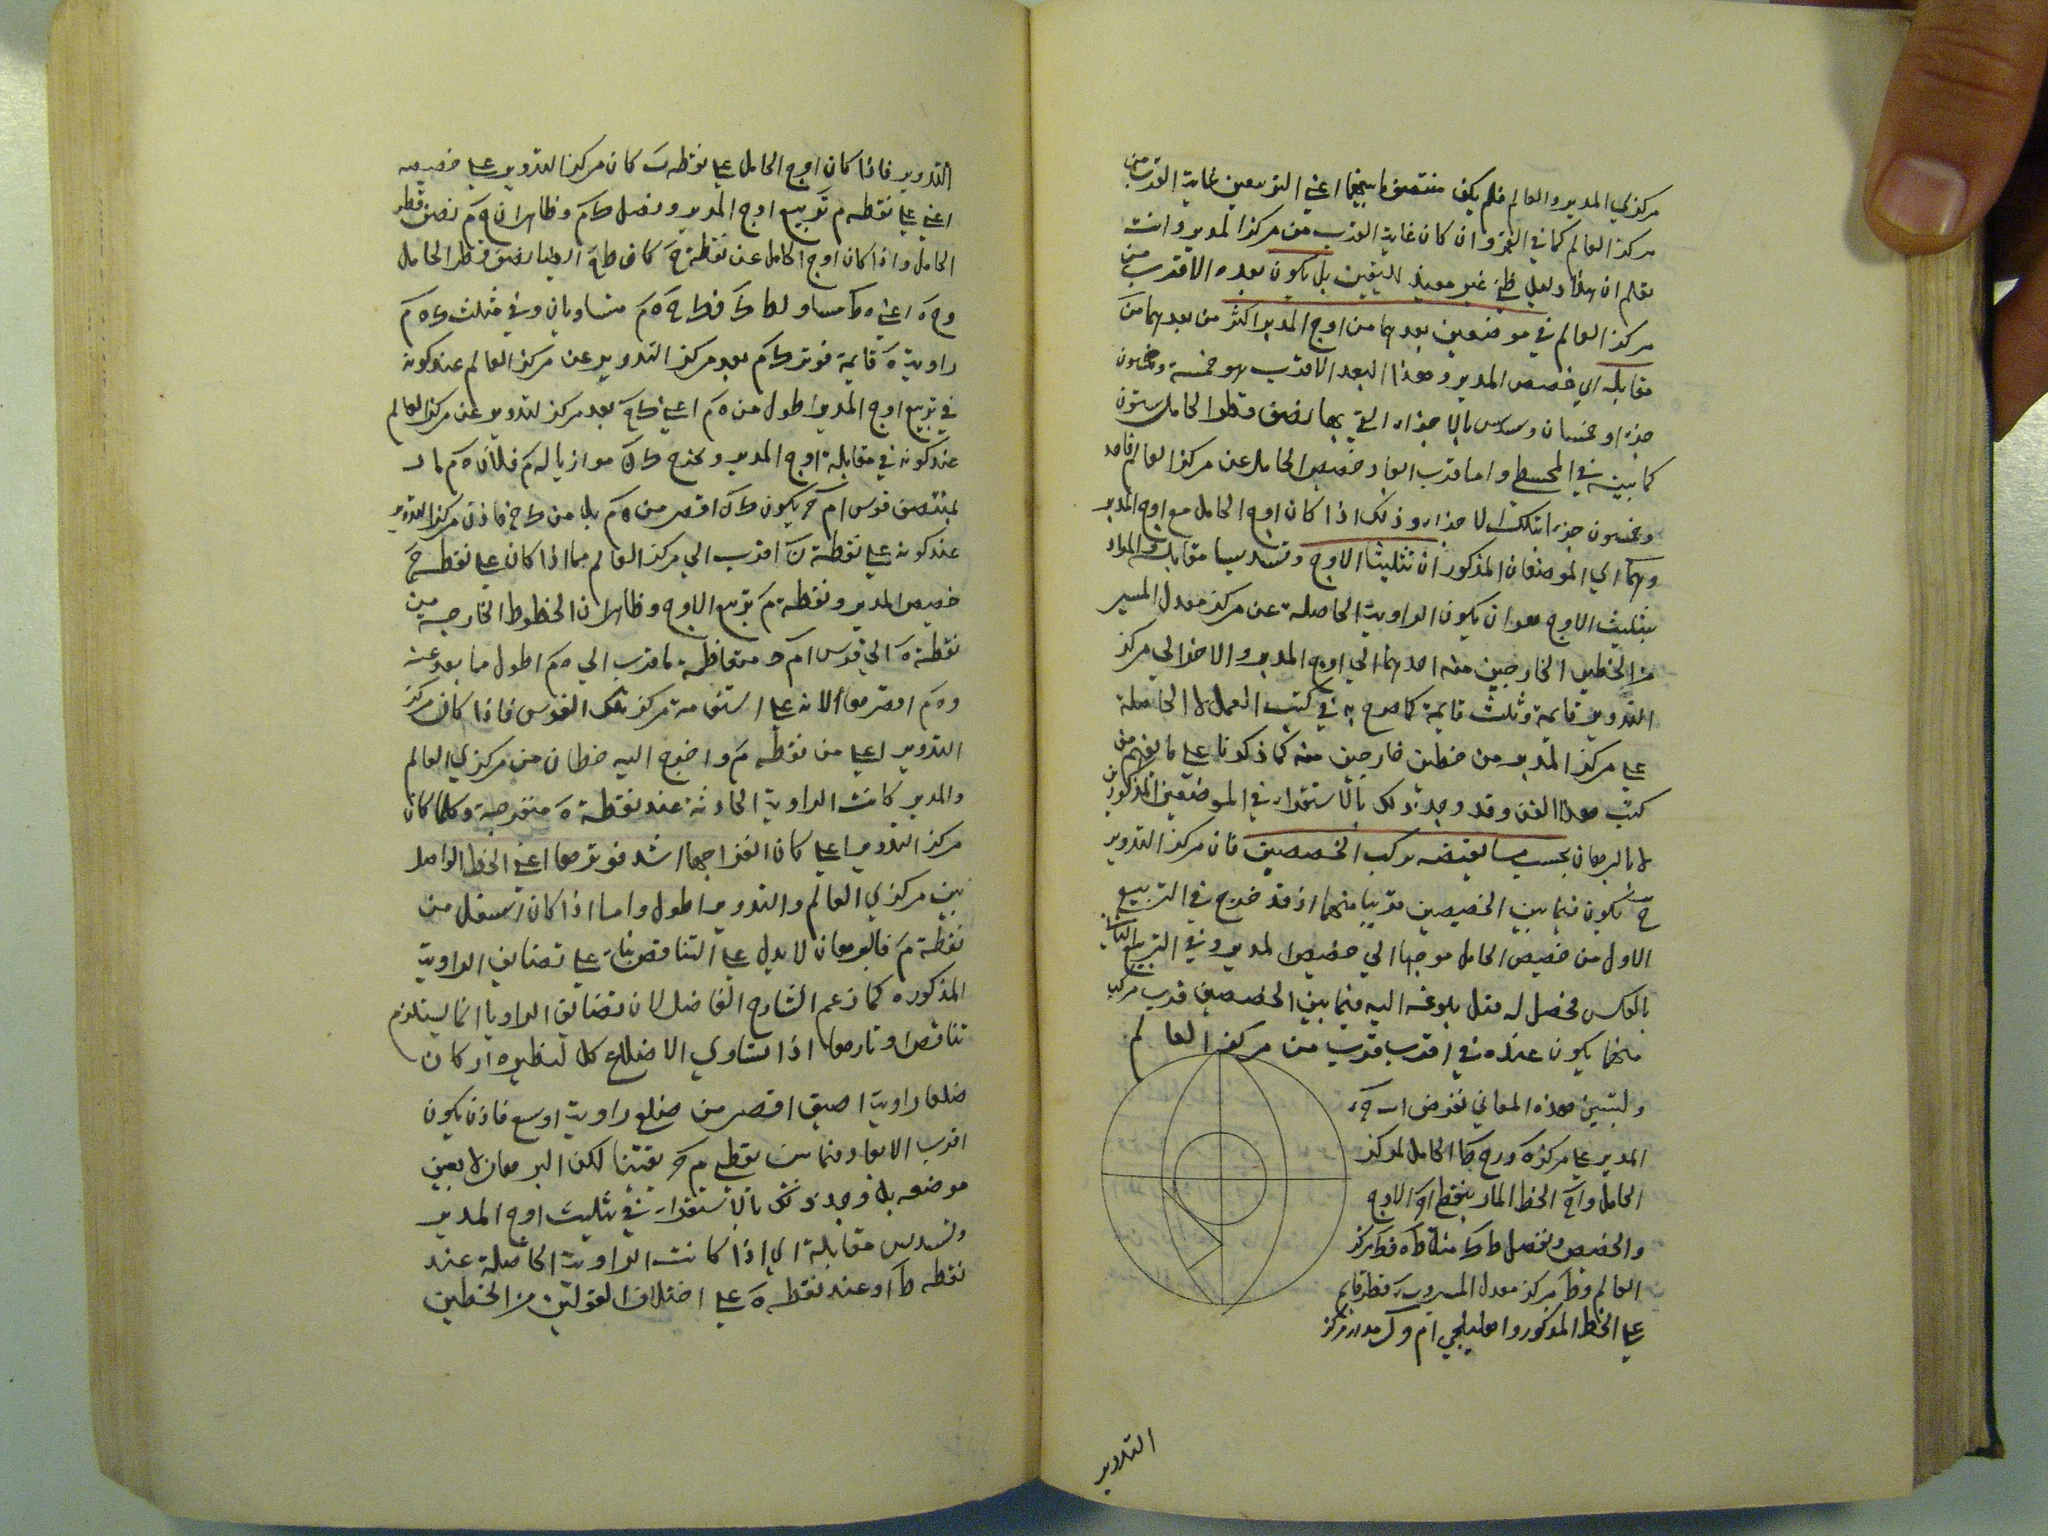 مركزي المدير والعالم فلم يكن منتصف ما بينهما اعني التربيعين غاية القرب من
مركز العالم كما في القمر وان كان غاية القرب من مركز المدير وانت
تعلم ان هذا دليل ظني غير مفيد لليقين بل يكون بعده الاقرب من
مركز العالم في موضعين بعدهما من اوج المدير اكثر من بعدهما من
مقابله اي حضيض المدير وهذا البعد الاقرب هو خمسة وخمسون
جزءا وخمسان وسدس بالاجزاء التي بها نصف قطر الحامل ستون
كما بينه في المجسطي واما قرب ابعاد حضيض الحامل عن مركز العالم فاحد
وخمسون جزءا بتلك الاجزاء وذلك اذا كان اوج الحامل مع اوج المدير
وهما اي الموضعان المذكوران تثليثا الاوج وتسديسا مقابله والمراد
بتثليث الاوج هو ان يكون الزاوية الحاصلة عن مركز معدل المسير
من الخطين الخارجين منه احدهما الى اوج المدير والاخر الى مركز
التدوير قايمة وثلث قايمة كما صرح به في كتب العمل لا الحاصلة
على مركز المدير من خطين خارجين منه كما ذكرنا على ما يفهم من
كتب هذا الفن وقد وجد ذلك بالاستقراء في الموضعين المذكورين
لا بالبرهان بحسب ما يقتضيه تركب الحضيضين فان مركز التدوير
ح يكون فيما بين الحضيضين قريبا منهما اذ قد خرج في التربيع
الاول من حضيض الحامل موجها الى حضيض المدير وفي التربيع الثاني
بالعكس فحصل له قبل بلوغه اليه فيما بين الحضيضين قرب مركب
منهما يكون عنده في اقرب قرب من مركز العالم
ولتبيين هذه المعاني نفرض ا ب ج
المدير على مركز ه و ر ح ط الحامل لمركز
الحامل و ا ج الخط المار بنقطتي الاوج
والحضيض ونفصل ط ك مثل ط ه فك مركز
العالم و ط مركز معدل المسير و ب قطر قايم
على الخط المذكور واهليلجي ا م و ل مدار مركز
التدوير
التدوير فاذا كان اوج الحامل على نقطة ب كان مركز التدوير على حضيضه
اعني على نقطة م تربيع اوج المدير ونصل ك م وظاهر ان ح م نصف قطر
الحامل واذا كان اوج الحامل عن نقطة ح كان ط ح ايضا نصف قطر الحامل
و ح ه اعني ه ط مساو ل ط ك ف ك ح ه م متساويان وفي مثلث ك ه م
زاوية ه قايمة فوتر ك م بعد مركز التدوير عن مركز العالم عند كونه
في تربيع اوج المدير اطول من ه م اعني ك ح بعد مركز التدوير عن مركز العالم
عند كونه في مقابلة اوج المدير ونخرج ك ن موازيا له م فلان ه م مار
بمنتصف قوس ا م ح يكون ك ن اقصر من ه م بل من ك ح فاذن مركز التدوير
عند كونه على نقطة ن اقرب الى مركز العالم مما اذا كان على نقطة ح
حضيض المدير ونقطة م تربيع الاوج وظاهر ان الخطوط الخارجة من
نقطة ه الى قوس ا م ح متفاضلة ما قرب الى ه م اطول مما بعد عنه
و ه م اقصرها لانه على استقامة مركز تلك القوس فاذا كان مركز
التدوير اعلى من نقطة م واخرج اليه خطان من مركزي العالم
والمدير كانت الزاوية الحادثة عند نقطة ه منفرجة وكلما كان
مركز التدوير اعلى كان انفراجها اشد فوترها اعني الخط الواصل
بين مركزي العالم والتدوير اطول واما اذا كان اسفل من
نقطة م فالبرهان لا يدل على التناقص بناء على تضايق الزاوية
المذكوره كما زعم الشارح الفاضل لان تضايق الزوايا انما يستلزم
تناقص اوتارها اذا تساوى الاضلاع كل لنظيره او كان
ضلعا زاوية اضيق اقصر من ضلعي زاوية اوسع فاذن يكون
اقرب الابعاد فيما بين نقطتي م ح يقينا لكن البرهان لا يعين
موضعه بل وجد ذلك بالاستقراء في تثليث اوج المدير
وتسديس مقابلة اي اذا كانت الزاوية الحاصلة عند
نقطة ط او عند نقطة ه على اختلاف القولين من الخطين